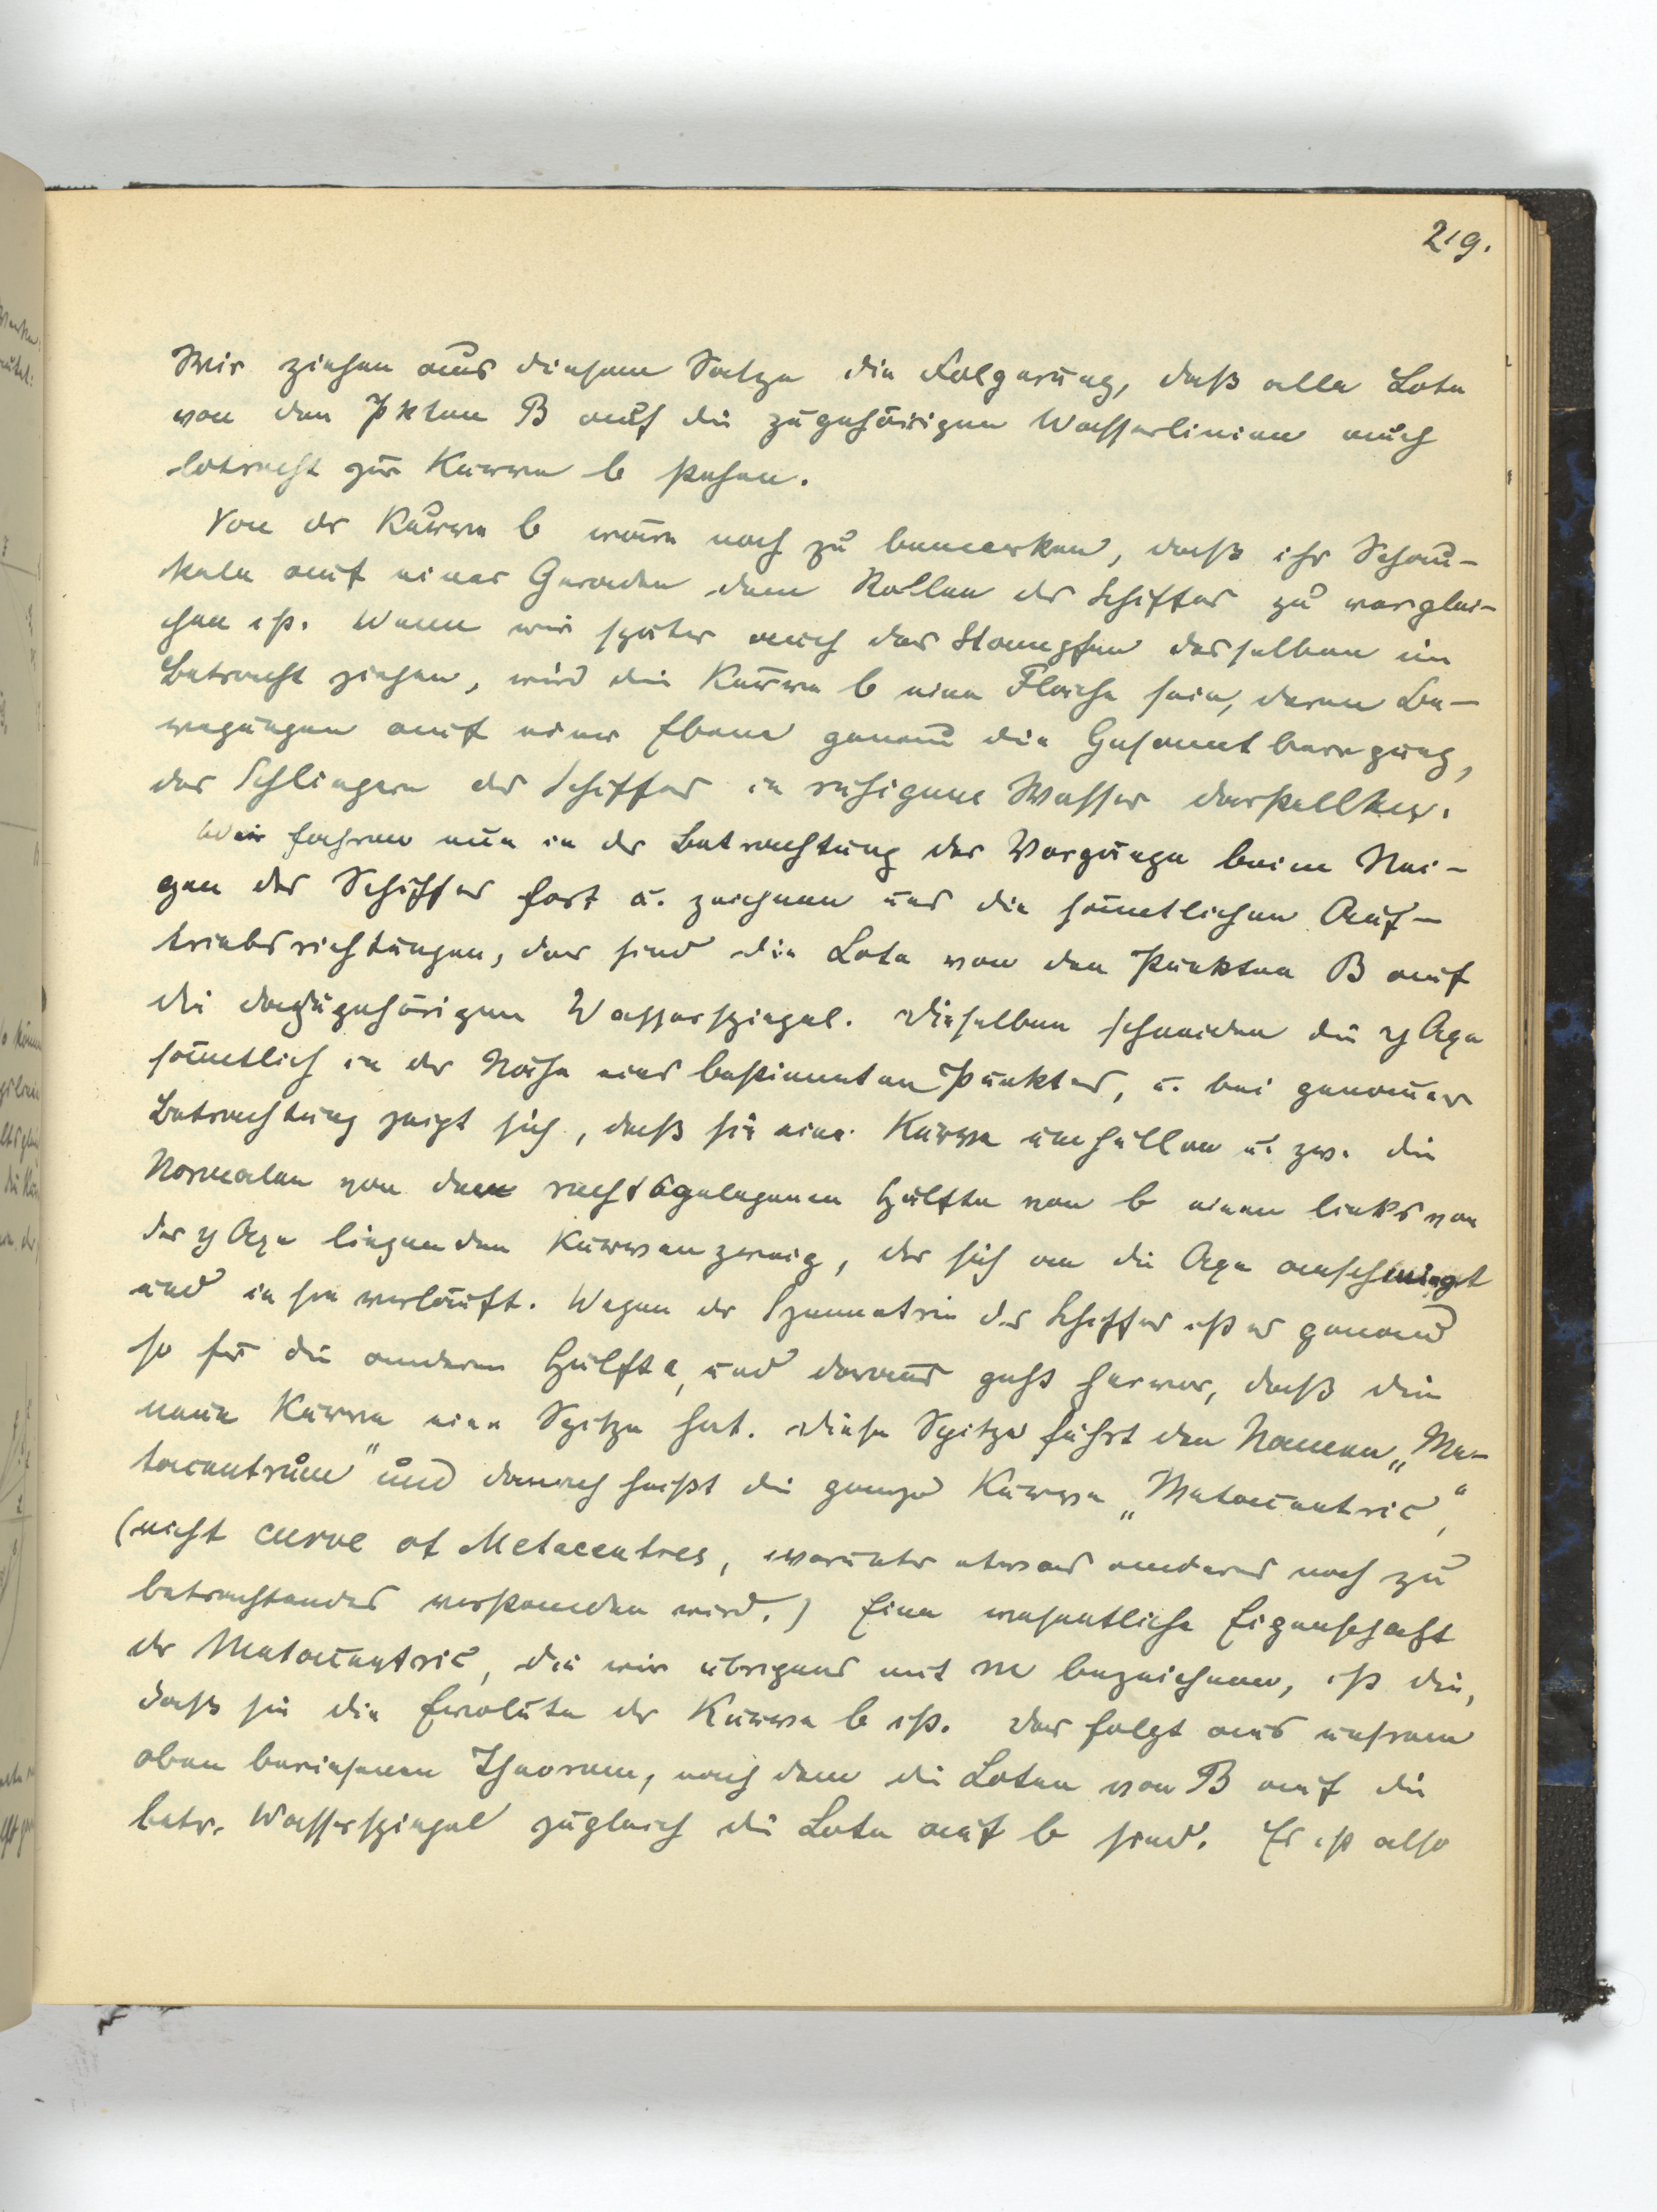 219.
Wir ziehen aus diesem Satze die Folgerung, daß alle Lote
von den Pkten B auf die zugehörigen Wasserlinien auch
lotrecht zur Kurve b stehen.
Von der Kurve b wäre noch zu bemerken, daß ihr Schau-
keln auf einer Geraden dem Rollen des Schiffes zu verglei-
chen ist. Wenn wir später auch das Stampfen desselben in
Betracht ziehen, wird die Kurve b eine Fläche sein, deren Be-
wegungen auf einer Ebene genau die Gesamtbewegung,
das Schlingern des Schiffes in ruhigem Wasser darstellen.
Wir fahren nun in der Betrachtung der Vorgänge beim Nei-
gen des Schiffes fort u. zeichnen uns die sämtlichen Auf-
triebsrichtungen, das sind die Lote von den Punkten B auf
die dazugehörigen Wasserspiegel. Dieselben schneiden die y Axe
sämtlich in der Nähe eines bestimmten Punktes, u. bei genauer
Betrachtung zeigt sich, daß sie eine Kurve umhüllen u. zw. die
Normalen von der rechtsgelegenen Hälfte von b einen links von
der y Axe liegenden Kurvenzweig, der sich an die Axe anschmiegt
und in sie verläuft. Wegen der Symmetrie des Schiffes ist es genau
so für die anderen Hälfte, und daraus geht hervor, daß die
neue Kurve eine Spitze hat. Diese Spitze führt den Namen „Me-
tacentrum" und danach heißt die ganze Kurve „Metacentric",
(nicht curve of Metacentres, worunter etwas anderes noch zu
betrachtendes verstanden wird.) Eine wesentliche Eigenschaft
der Metacentric, die wir übrigens mit m bezeichnen, ist die,
daß sie die Evolute der Kurve b ist. Das folgt aus unsrem
oben bewiesenen Theorem, nach dem die Loten von B auf die
betr. Wasserspiegel zugleich die Lote auf b sind. Es ist also